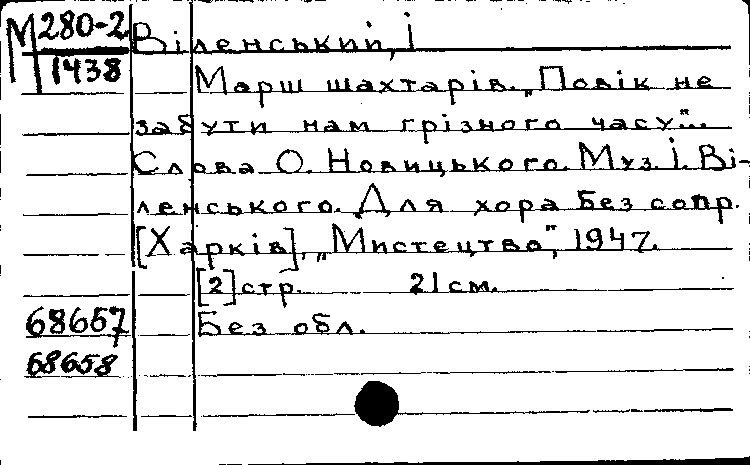 М 280-2
1438
Віленський, І
Марш шахтарів. „Повік не
забути нам грізного часу"...
Слова О. Новицького. Муз. І. Ві-
ленського. Для хора без сопр.
[Харків], „Мистецтво", 1947.
[2] стр. 21 см.
68657 Без обл.
68658